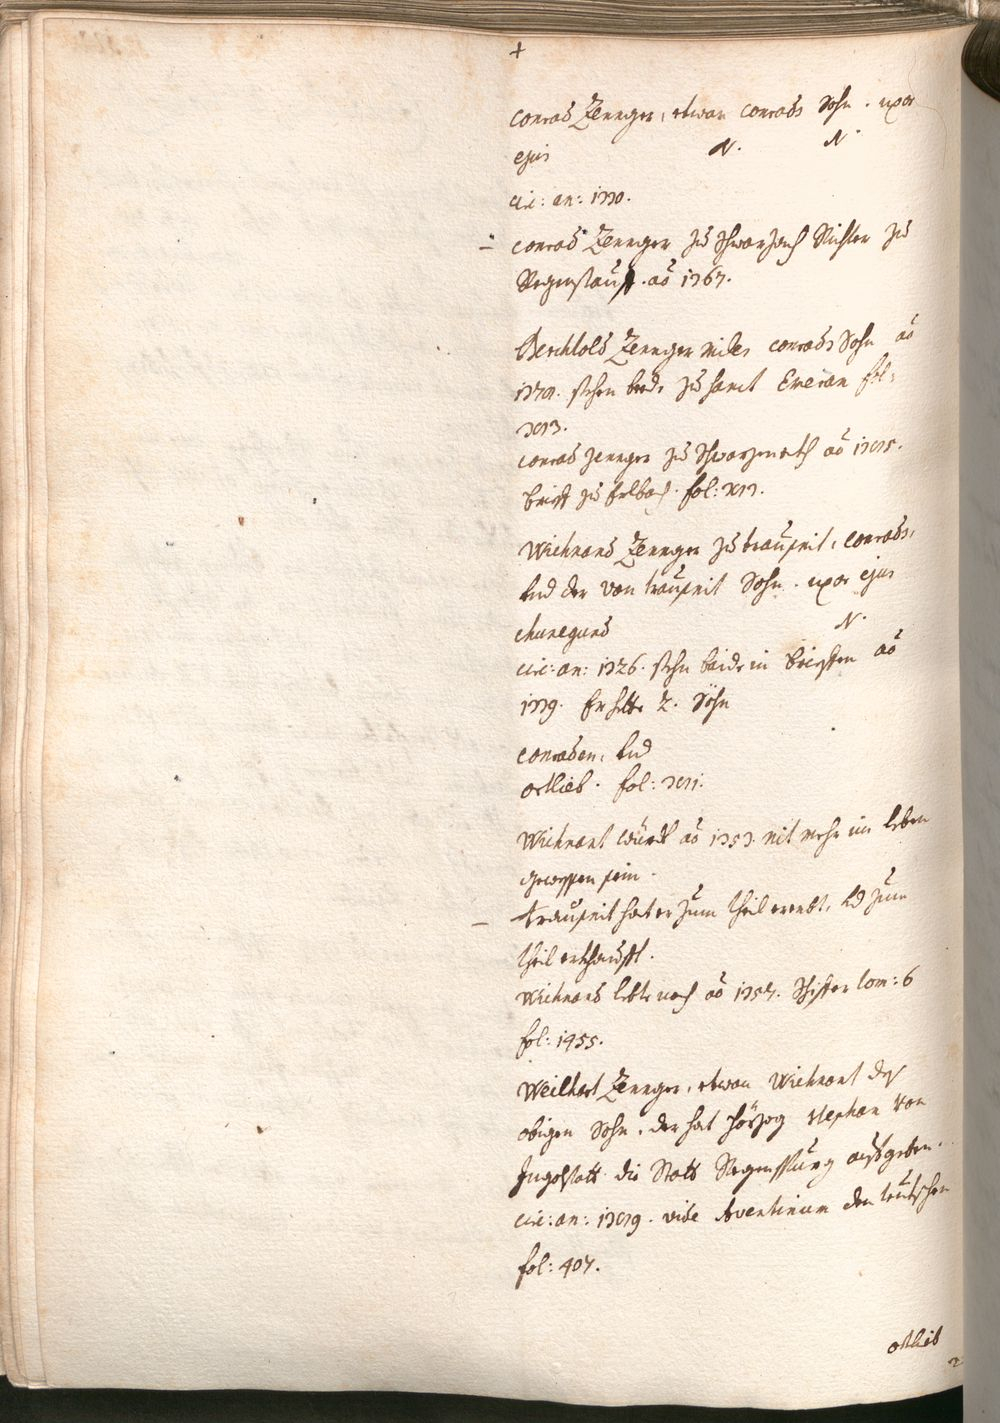 +
Conrad Zennger, etwan Conrads Sohn. uxor
ejus N. N.
circ: an: 1330.
– Conrad Zennger zu Schwarzach Richter zu
Regenstauf. aõ 1367.
Berchtold Zennger Miles Conrads Sohn aõ
stehen beede zu Sanct Emeran fol:
Conrad Zennger zu Schwarzenech aõ
brieff zu fol:
Wichnand Zennger zu trausnit, Conrads,
und der von trausnit Sohn. uxor ejus
Chunegund N.
circ: an: 1326. stehn baide in brieffen aõ
1339. Er hette 2. Söhn
Conraden, und
Ortlieb. fol:
Wichnant würdt aõ 1353. nit mehr im leben
gewessen sein.
– trausnit hat er zum theil ererbt, und zum
theil erkhaufft.
Wichnand lebte noch aõ 1354. tom: 6
fol: 1955.
Weilhart Zennger, etwan Wichnant des
obigen Sohn, der hat Hörzog Stephan von
Ingolstatt die Statt Regenspurg aufgeben.
circ: an: vide Aventinum den teütschen
fol: 407.
Ortlieb